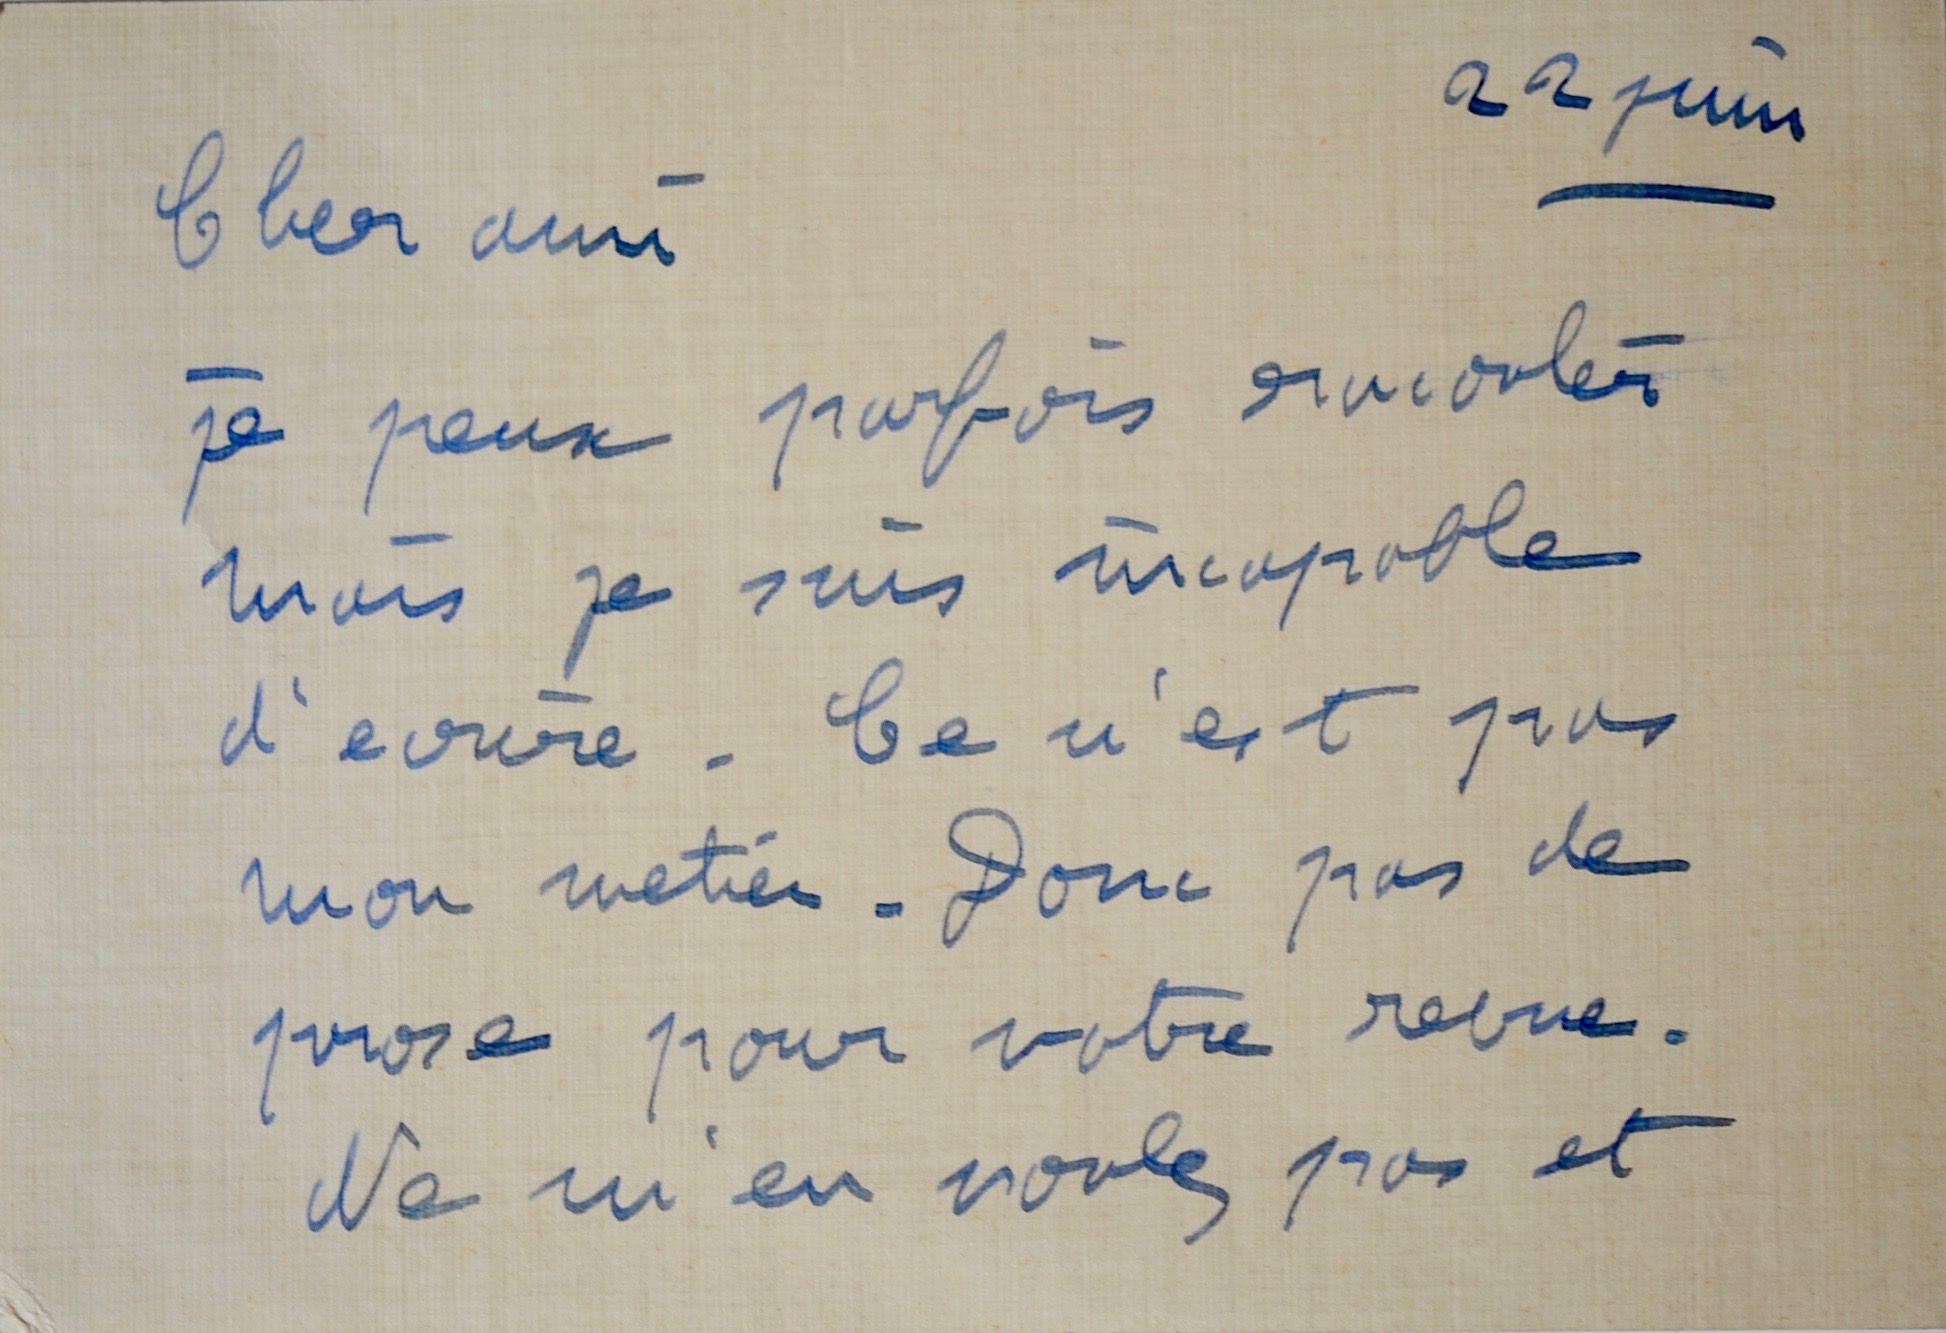 22 juin
Cher ami
je peux parfois raconter
mais je suis incapable
d'ecrire. Ce n'est pas
mon metier. Donc pas de
prose pour votre revue.
Ne m'en voulez pas et